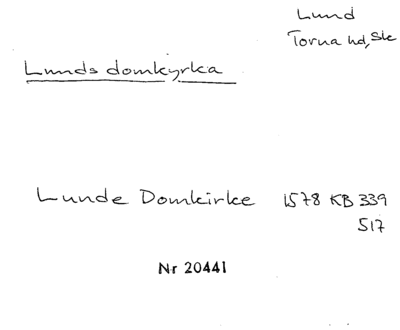 Lund
Torna hd, Sk
Lunds domkyrka
Lunde Domkirke 1578 KB 339
517
Nr 20441